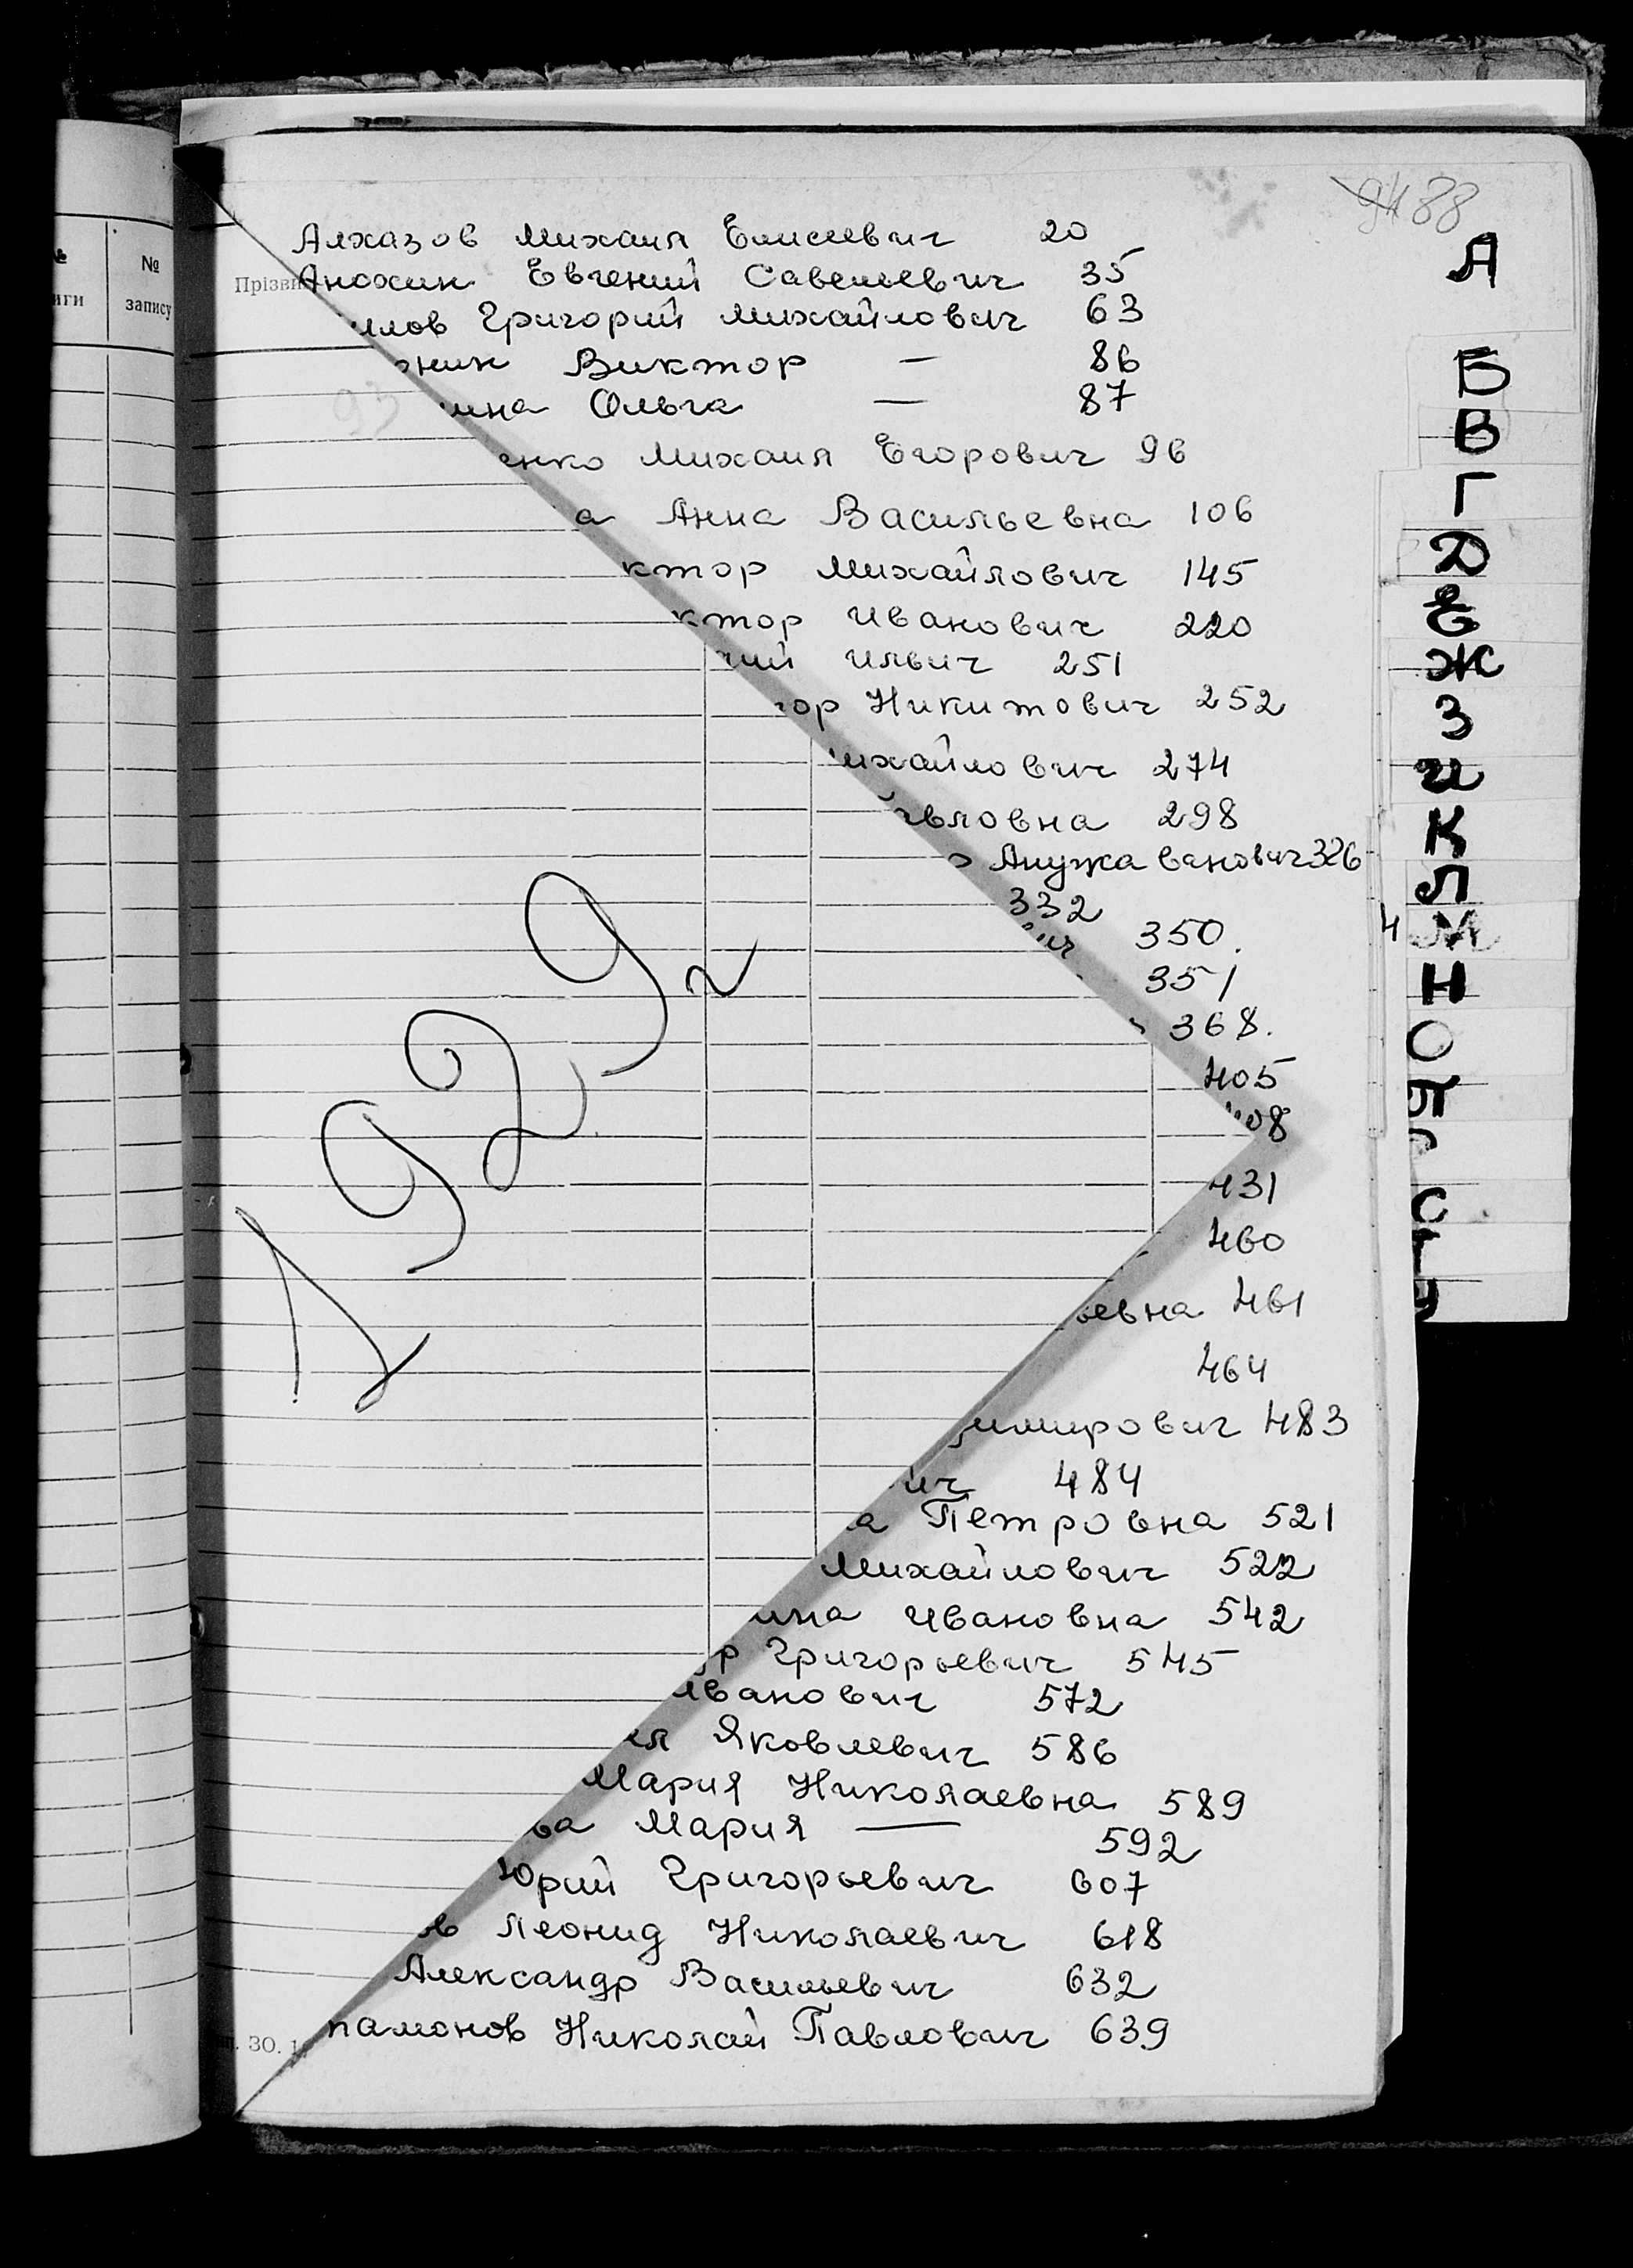 №
иги
№
запису
88
Алхазов Михаил Елисеевич 20
Прізви
Анохин Евгений Савельевич 35
илов Григорий Михайлович 63
ник Виктор — 86
ина Ольга — 87
енко Михаил Егорович 96
а Анна Васильевна 106
ктор Михайлович 145
ктор Иванович 220
ий Ильич 251
гор Никитович 252
ихайлович 274
авловна 298
332
ич 350.
351
368.
405
408
431
460
ьевна 461
464
димирович 483
ич 484
а Петровна 521
Михайлович 522
ина Ивановна 542
др Григорьевич 545
Иванович 572
ил Яковлевич 586
Мария Николаевна 589
ва Мария — 592
Юрий Григорьевич 607
ов Леонид Николаевич 618
Александр Васильевич 632
памонов Николай Павлович 639
1929г
30. 1
А
Б
В
Г
Д
Е
Ж
З
И
К
Л
М
Н
О
П
С